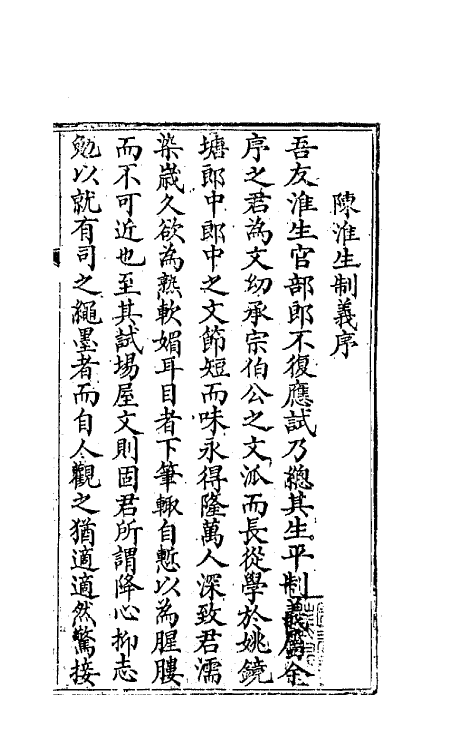 陳淮生制義序
吾友淮生官部郎不復應試乃總其生平制義屬余
序之君為文幼承宗伯公之文派而長從學於姚鏡
塘郎中郎中之文節短而味永得隆萬人深致君濡
染歲久欲為熟軟媚耳目者下筆輙自慙以為腥膢
而不可近也至其試場屋文則固君所謂降心抑志
勉以就有司之繩墨者而自人觀之猶適適然驚接